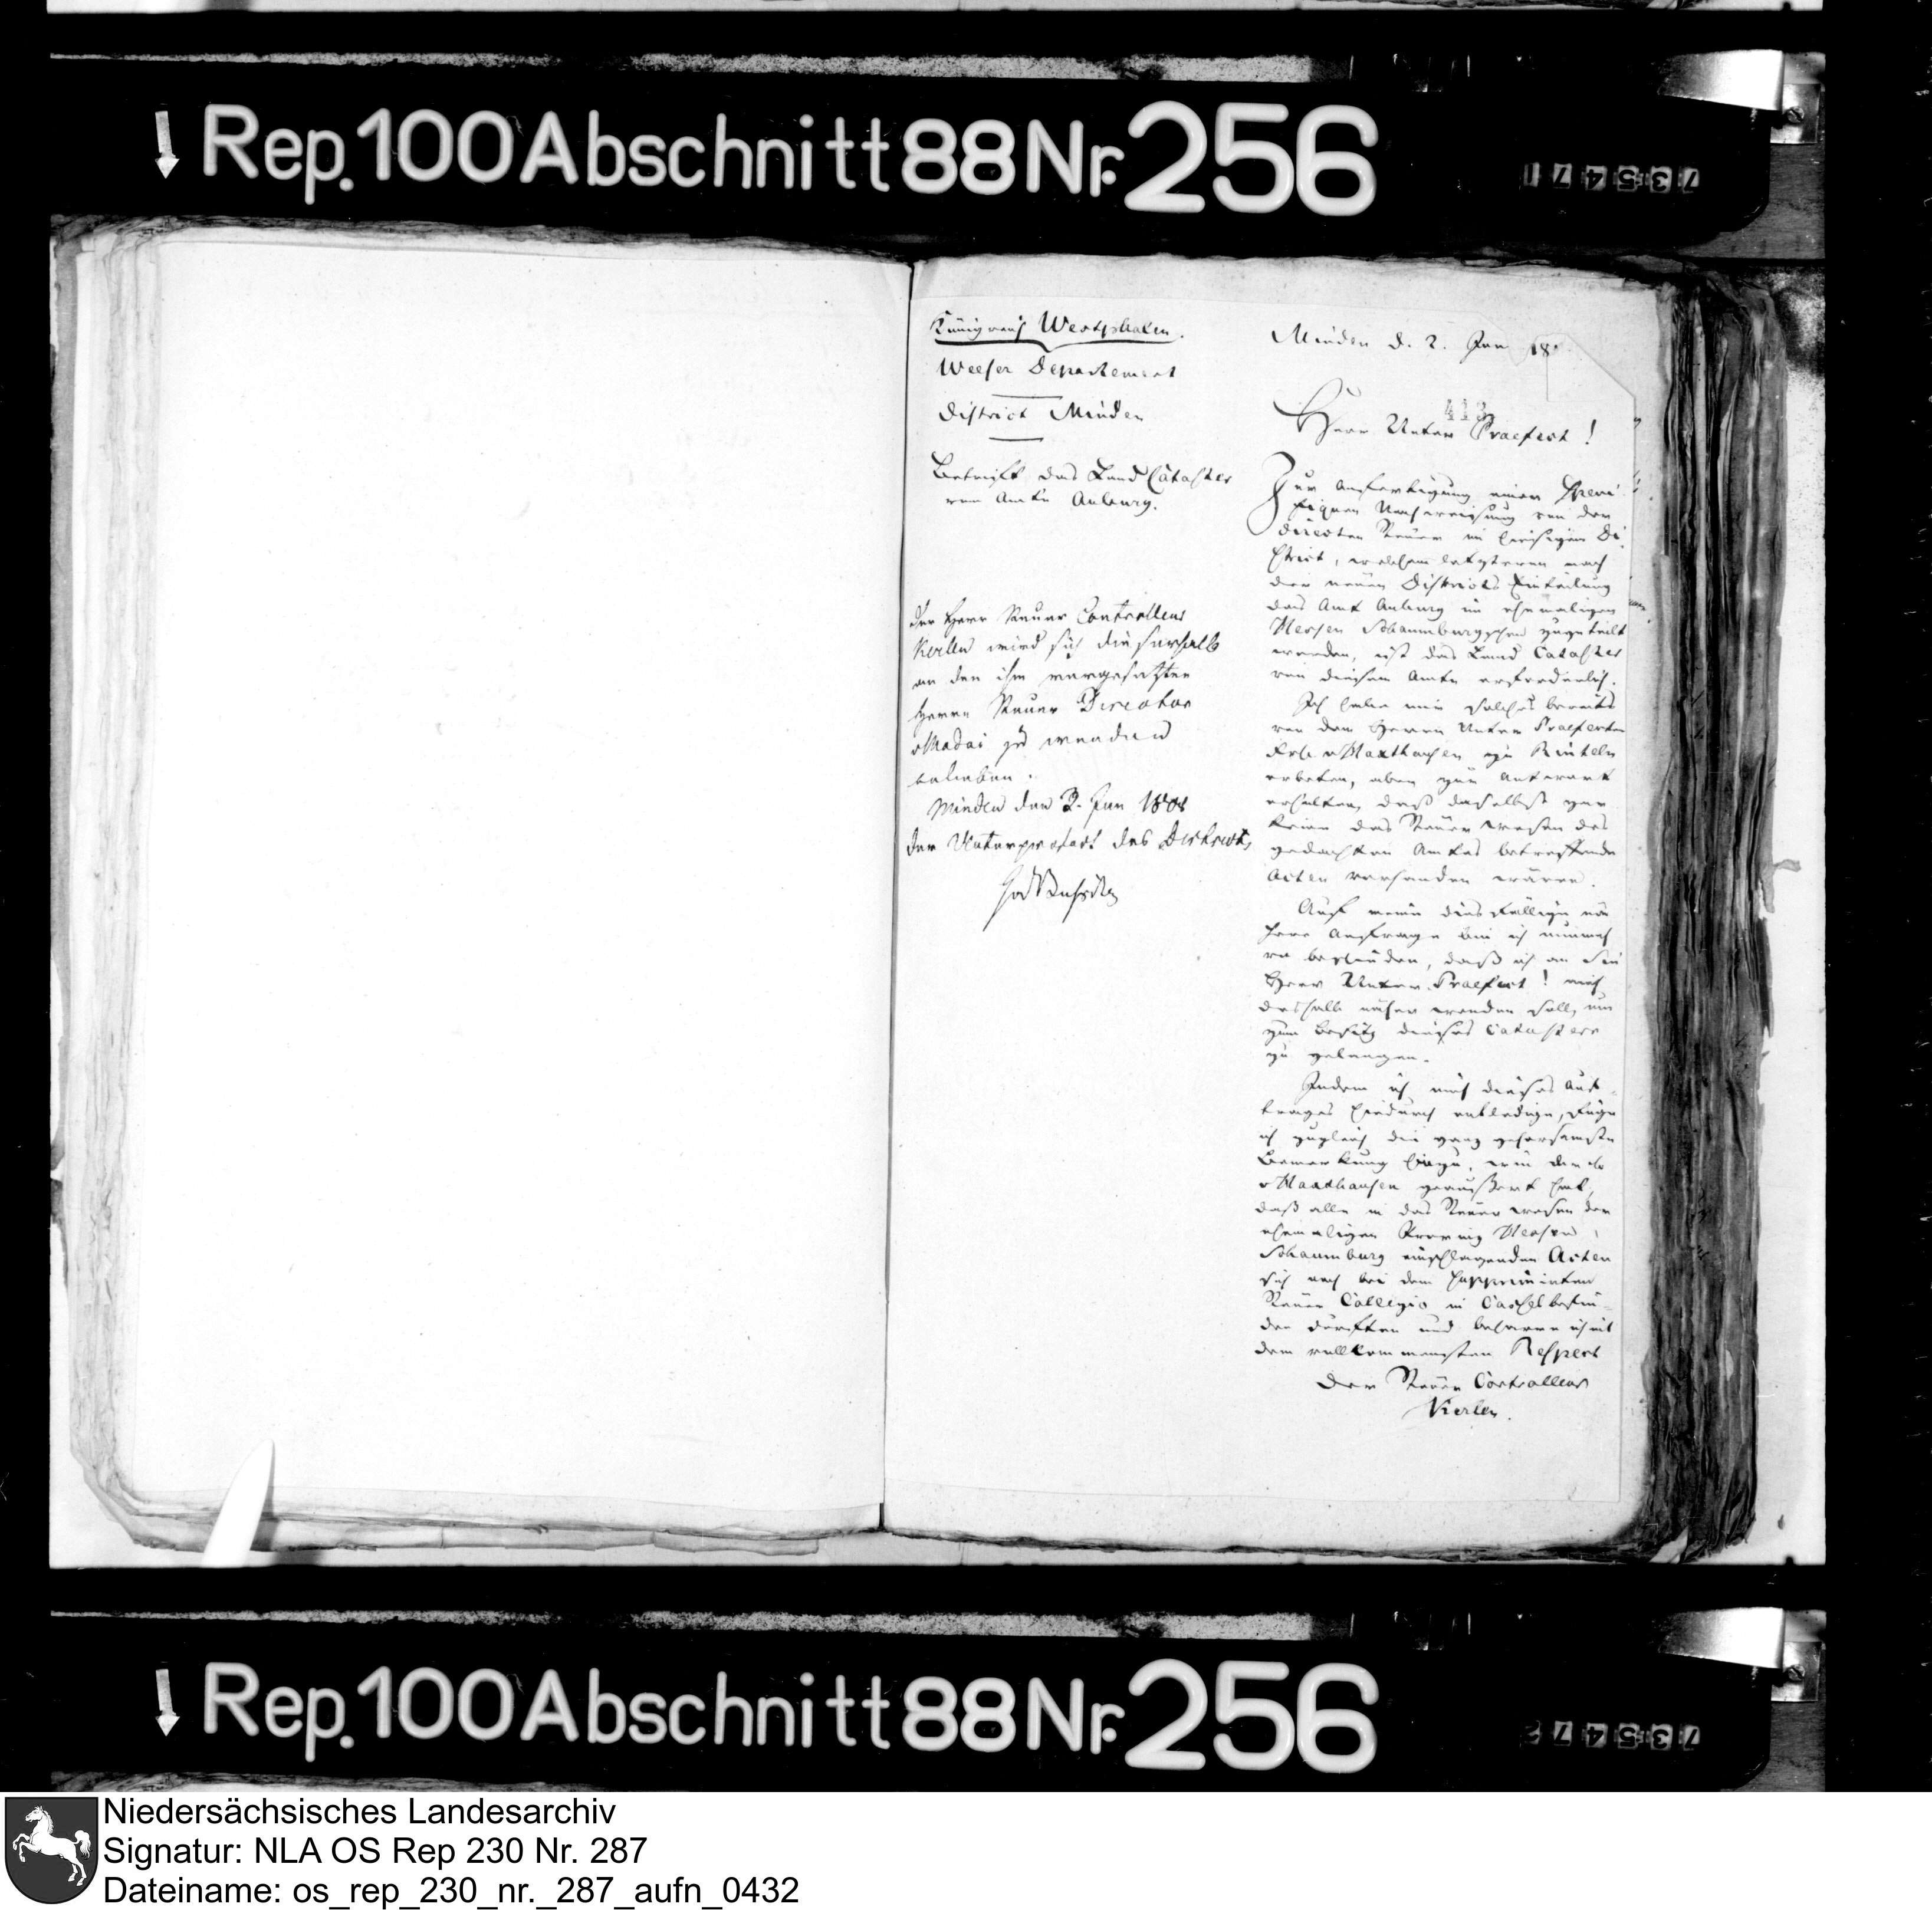 Rep. 100 Abschnitt 88 Nr. 256
735471
Königreich Westphalen.
Weeser Departement
District Minden
Betrifft das Land Cataster
vom Amte Auburg.
Der Herr Steuer Controlleur
Kerlen wird sich dieserhalb
an den ihm vorgesetzten
Herrn Steuer Director
v Madai zu wenden
belieben.
Minden den 3. Jun 1808
Der Unterpräfect des Districts
Minden d. 2. Jun 18
413
Herr Unter Praefect!
Zur Anfertigung einer speci-
fiquen Nachweisung von der
directen Steuer im hiesigen Di-
strict, welchem letzteren nach
der neuen Districts Eintheilung
das Amt Auburg im ehemaligen
Hessen Schaumburgschen zugeteilt
worden, ist das Land Cataster
von diesem Amte erforderlich.
Ich habe mir solches bereits
von dem Herrn Unter Praefecten
zu Rinteln
erbeten, aber zur Antwort
erhalten, daß daselbst gar
keine das Steuer Wesen des
gedachten Amtes betreffende
Acten vorhanden wären.
Auf meine diesfällige nä-
here Anfrage bin ich nunmeh-
ro beschieden, daß ich an Sie
Herr Unter Praefect! mich
deshalb näher wenden soll, um
zum Besitz dieses Catasters
zu gelangen.
Indem ich mich dieses Auf-
trages hiedurch entledige, füge
ich zugleich die ganz gehorsamste
Bemerkung hinzu, wie der
geäußert hat,
daß alle in das Steuer Wesen der
ehemaligen Provinz Hessen
Schaumburg einschlagenden Acten
sich noch bei dem supprimirten
Steuer Collegio in Cassel befin-
den dürften und beharre ich mit
dem vollkommensten Respect
Der Steuer Controlleur
Kerlen.
Rep. 100 Abschnitt 88 Nr. 256
735472
Niedersächsisches Landesarchiv
Signatur: NLA OS Rep 230 Nr. 287
Dateiname: os_rep_230_nr._287_aufn_0432